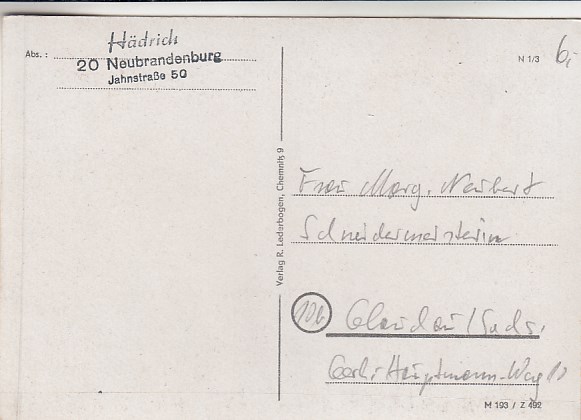 Abs.: Hädrich
20 Neubrandenburg
Jahnstraße 50
N 1/3
6,-
Verlag R. Lederbogen, Chemnitz 9
Frau Marg. Neubert
Schneidermeisterin
10b Glauchau/Sachs.
Gerh. Hauptmann-Weg 10
M 193 / Z 492